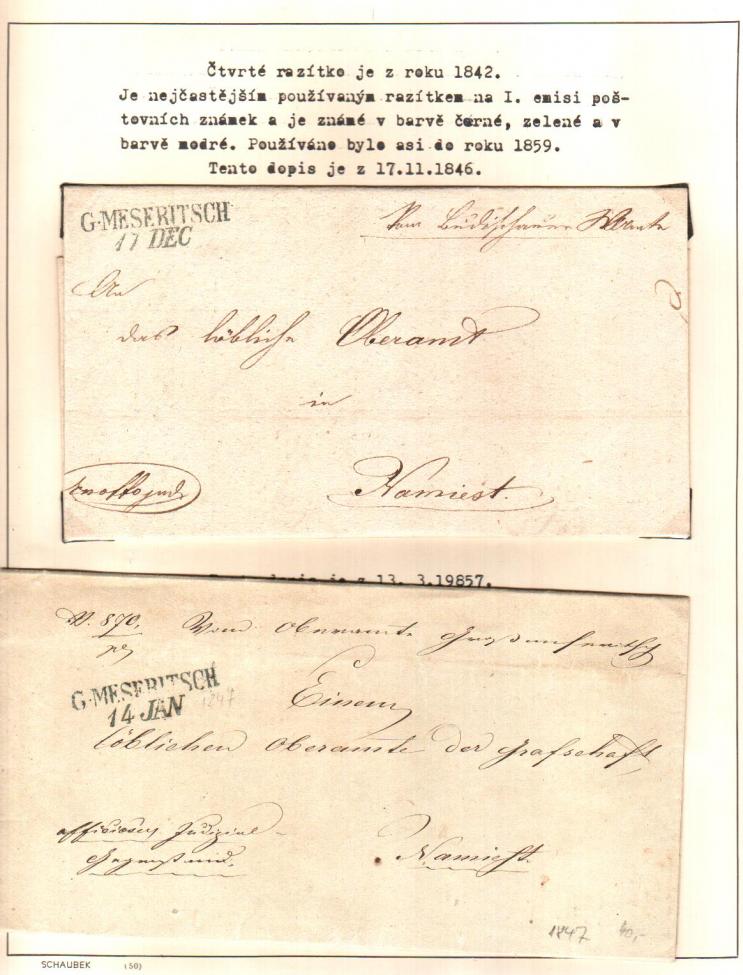 Čtvrté razítko je z roku 1842.
Je nejčastějším používaným razítkem na I. emisi poš-
tovních známek a je známé v barvě černé, zelené a v
barvě modré. Používáno bylo asi do roku 1859.
Tento dopis je z 17.11.1846.
G-MESERITSCH
17 DEC
Vom Budischauer
An
das löbliche Oberamt
in
Namiest.
dopis je z 13. 3.19857.
N. 870.
Vom Oberamte
G-MESERITSCH
14 JAN
1847
Einem
löblichen Oberamte der Grafschaft
Namiest.
1847 40,-
SCHAUBEK (50)